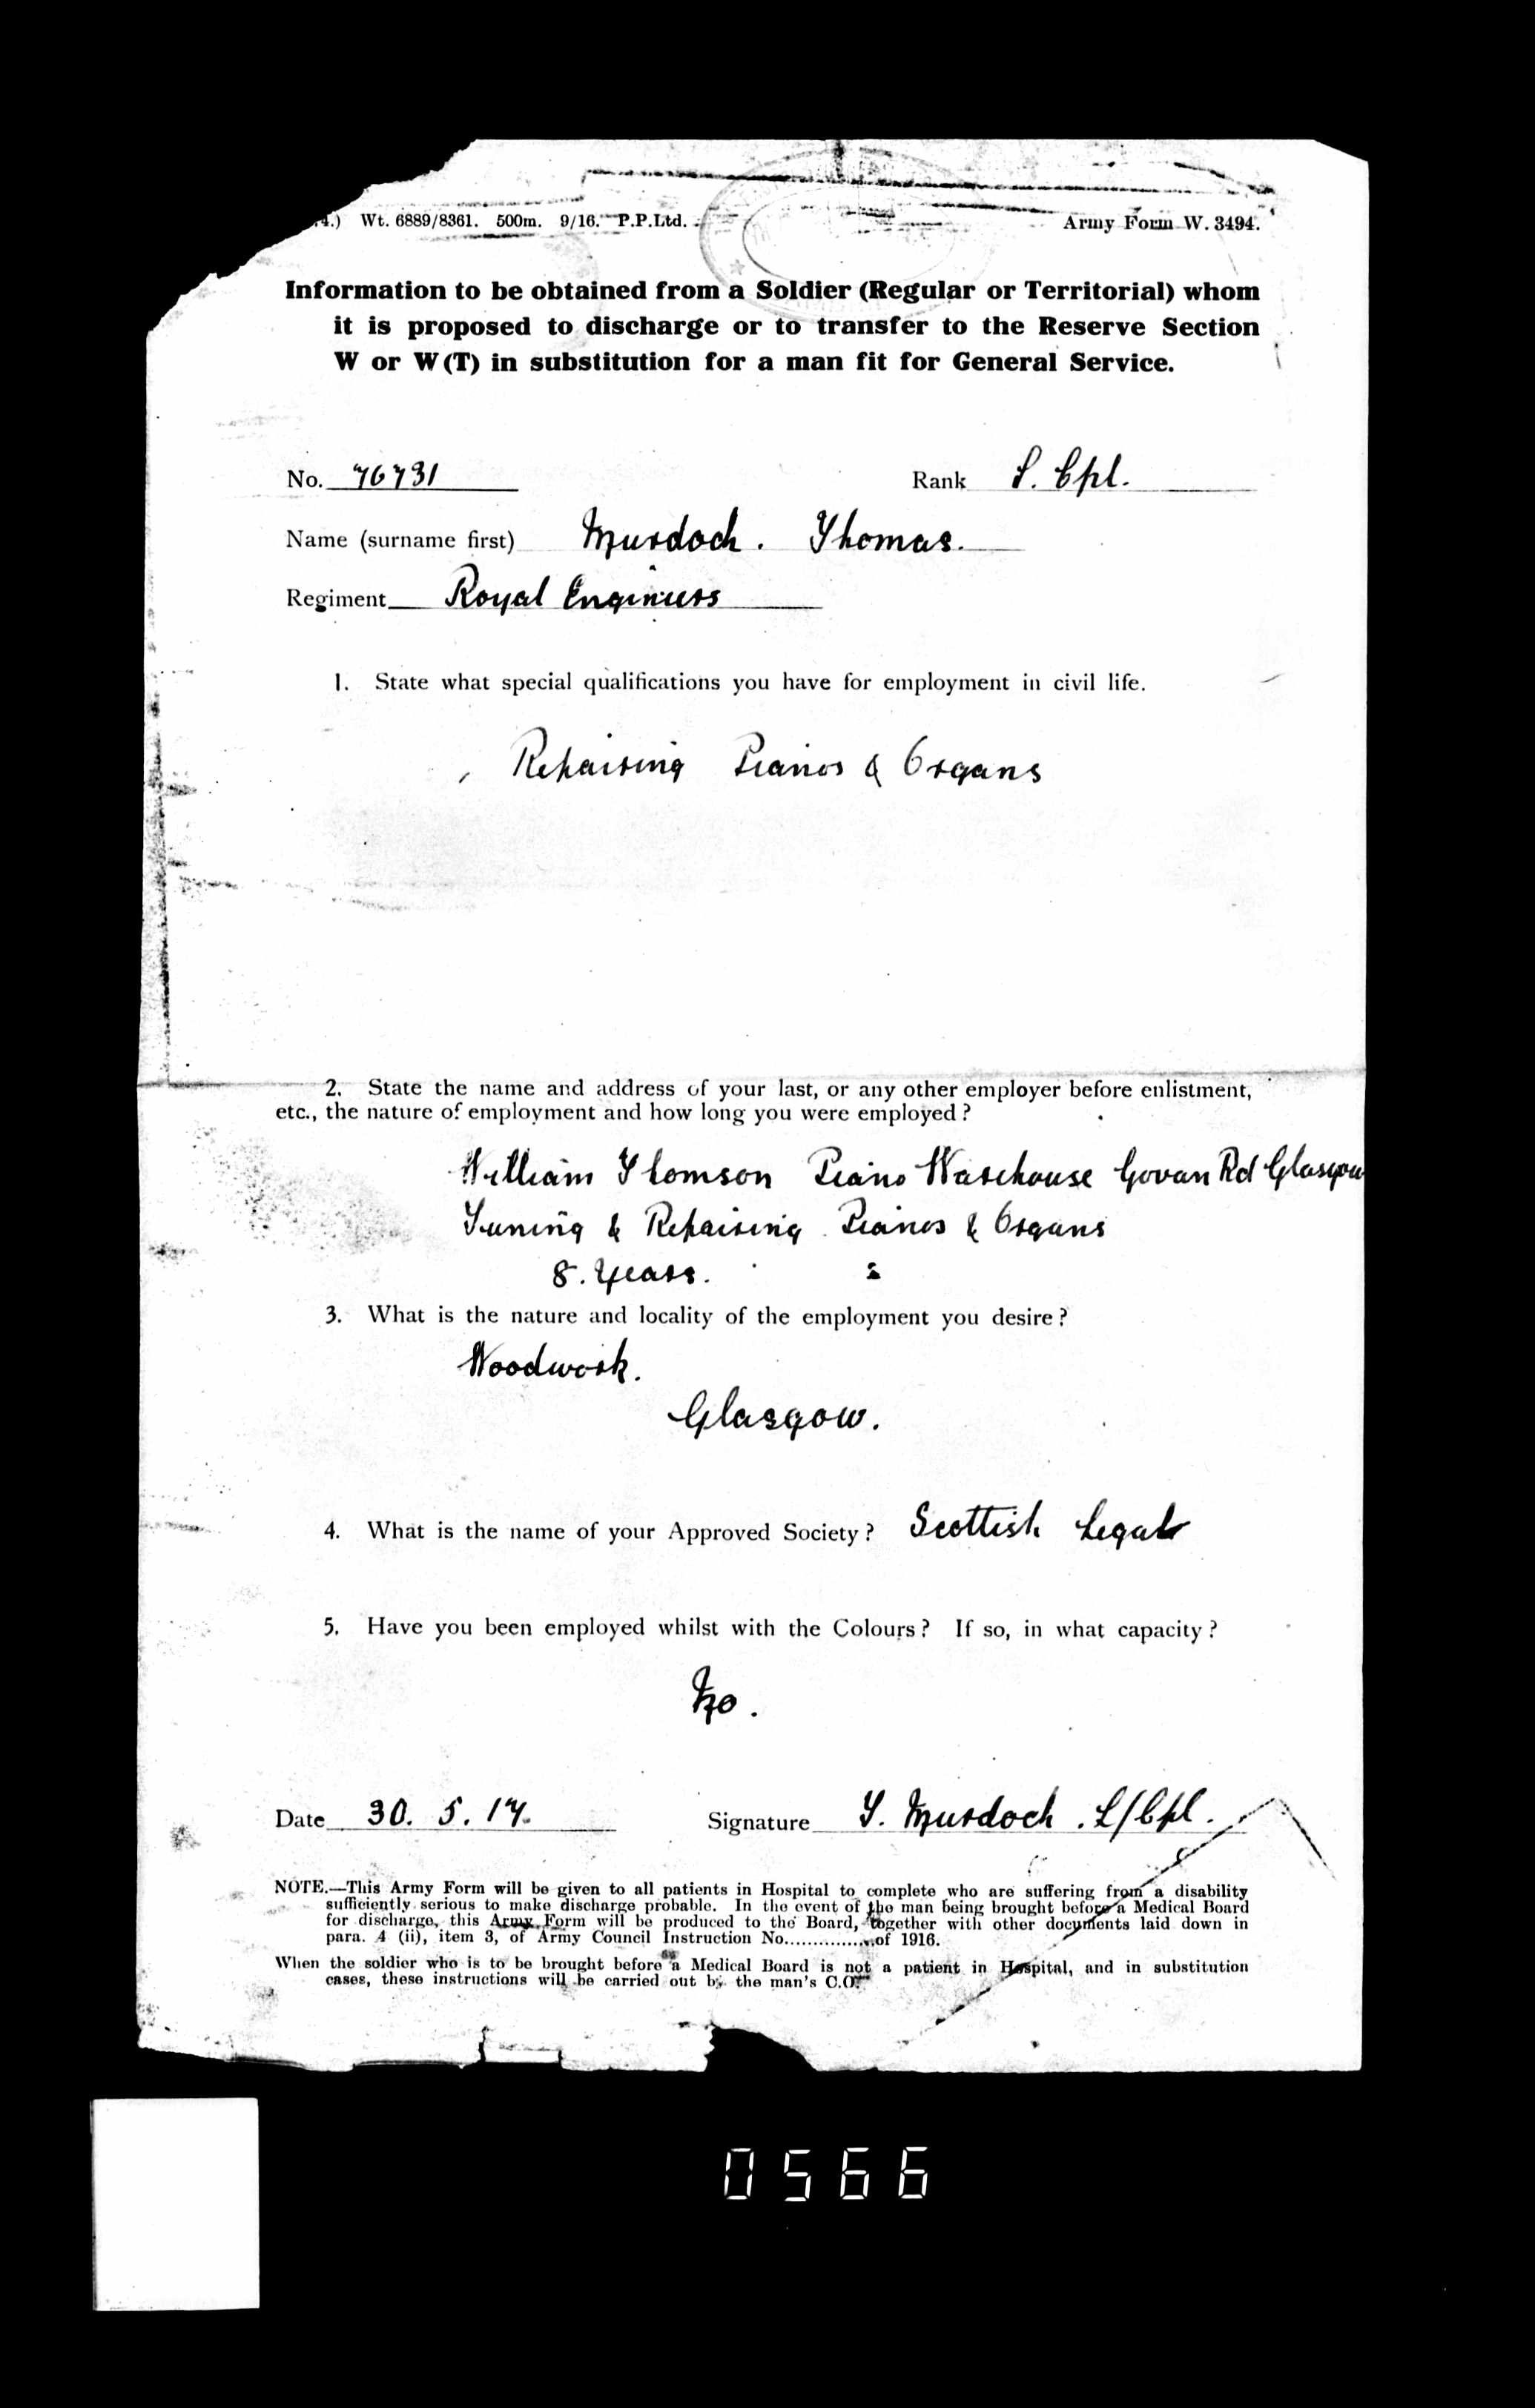 .4.) Wt. 6889/8361. 500m. 9/16. P.P.Ltd.
Army Form W. 3494.
Information to be obtained from a Soldier (Regular or Territorial) whom
it is proposed to discharge or to transfer to the Reserve Section
W or W(T) in substitution for a man fit for General Service.
No. 76731 Rank L. Cpl.
Name (surname first) Murdoch. Thomas.
Regiment Royal Engineers
1. State what special qualifications you have for employment in civil life.
Repairing Pianos & Organs
2. State the name and address of your last, or any other employer before enlistment,
etc., the nature of employment and how long you were employed?
William Thomson Piano Warehouse Govan Rd Glasgow
Tuning & Repairing Pianos & Organs
8. Years.
3. What is the nature and locality of the employment you desire?
Woodwork.
Glasgow.
4. What is the name of your Approved Society? Scottish Legal
5. Have you been employed whilst with the Colours? If so, in what capacity?
No.
Date 30. 5. 17. Signature T. Murdoch. L/Cpl.
NOTE.—This Army Form will be given to all patients in Hospital to complete who are suffering from a disability
sufficiently serious to make discharge probable. In the event of the man being brought before a Medical Board
for discharge, this Army Form will be produced to the Board, together with other documents laid down in
para. 4 (ii), item 3, of Army Council Instruction No...............of 1916.
When the soldier who is to be brought before a Medical Board is not a patient in Hospital, and in substitution
cases, these instructions will be carried out by the man's C.O.
0566